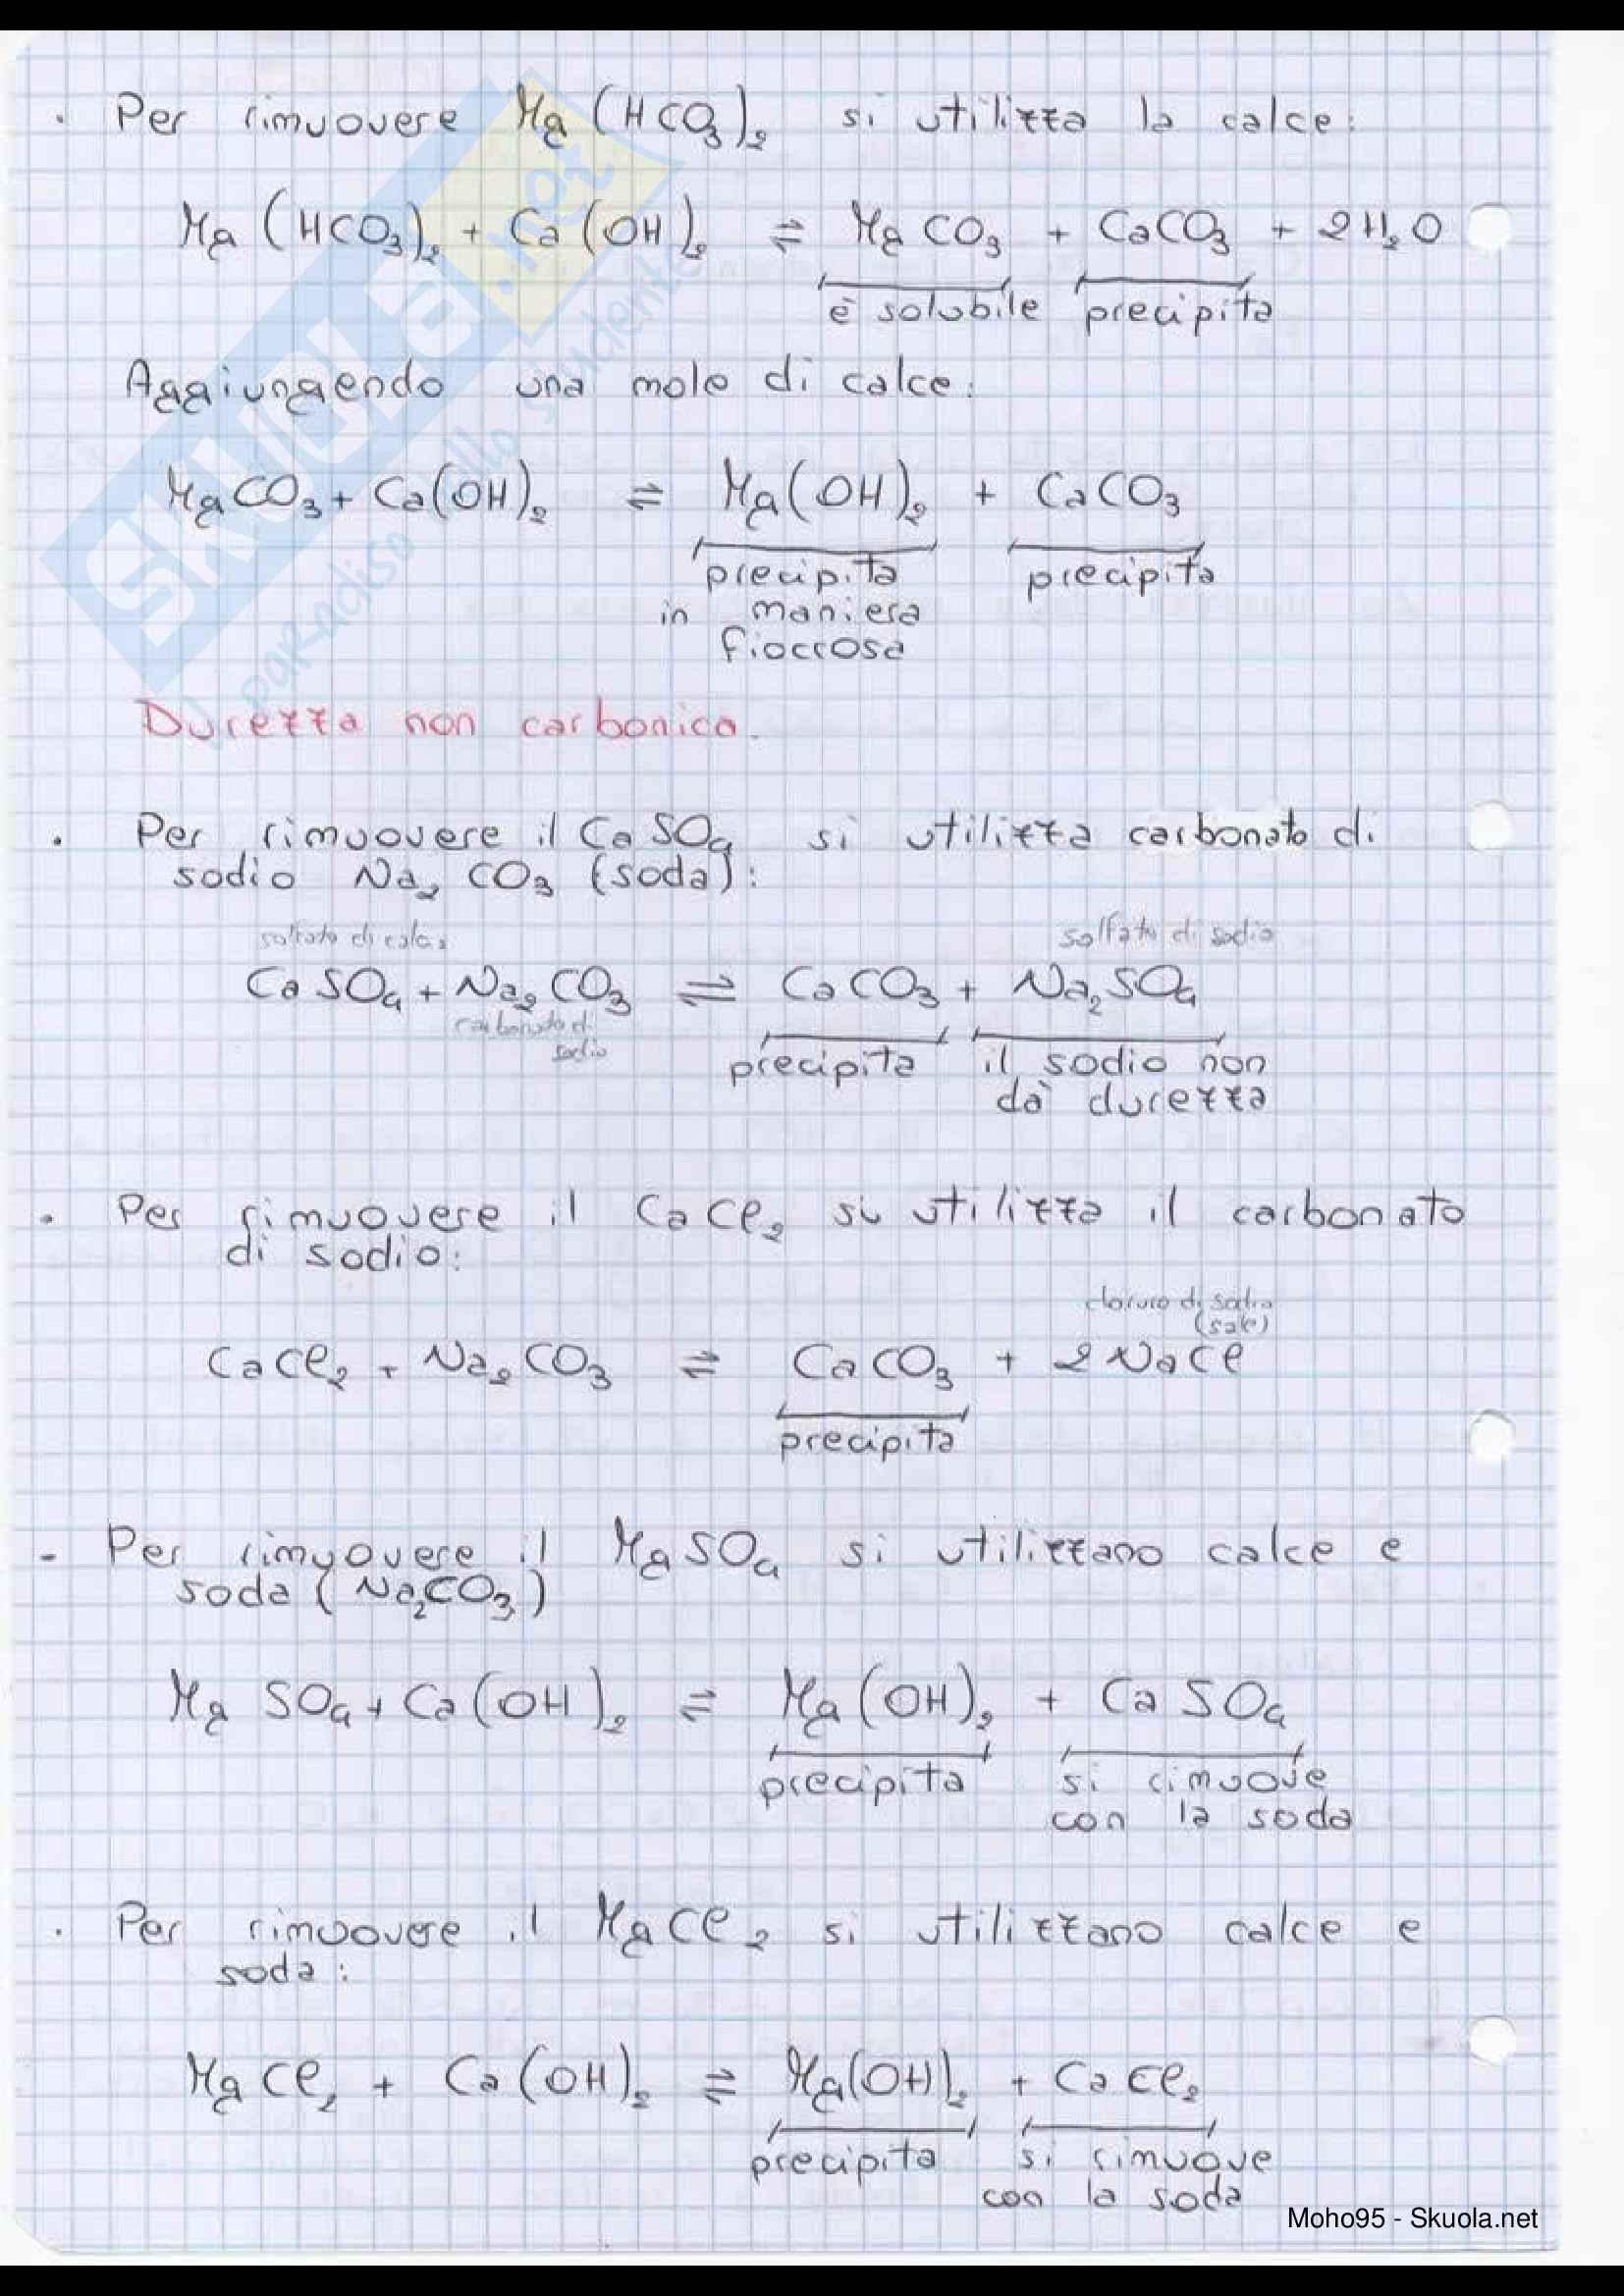 . Per rimuovere Mg (HCO₃)₂ si utilizza la calce:
Mg (HCO₃)₂ + Ca (OH)₂ ⇌ MgCO₃ + CaCO₃ + 2H₂O
è solubile precipita
Aggiungendo una mole di calce:
MgCO₃ + Ca(OH)₂ ⇌ Mg(OH)₂ + CaCO₃
precipita precipita
in maniera
fioccosa
Durezza non carbonica.
. Per rimuovere il CaSO₄ si utilizza carbonato di
sodio Na₂CO₃ (soda):
solfato di calcio solfato di sodio
CaSO₄ + Na₂CO₃ ⇌ CaCO₃ + Na₂SO₄
carbonato di
sodio
precipita il sodio non
dà durezza
. Per rimuovere il CaCl₂ si utilizza il carbonato
di sodio:
cloruro di sodio
(sale)
CaCl₂ + Na₂CO₃ ⇌ CaCO₃ + 2NaCl
precipita
- Per rimuovere il MgSO₄ si utilizzano calce e
soda (Na₂CO₃)
Mg SO₄ + Ca(OH)₂ ⇌ Mg(OH)₂ + CaSO₄
precipita si rimuove
con la soda
. Per rimuovere il MgCl₂ si utilizzano calce e
soda:
MgCl₂ + Ca(OH)₂ ⇌ Mg(OH)₂ + CaCl₂
precipita si rimuove
con la soda
Moho95 - Skuola.net
SKUOLA.net
paradiso dello studente